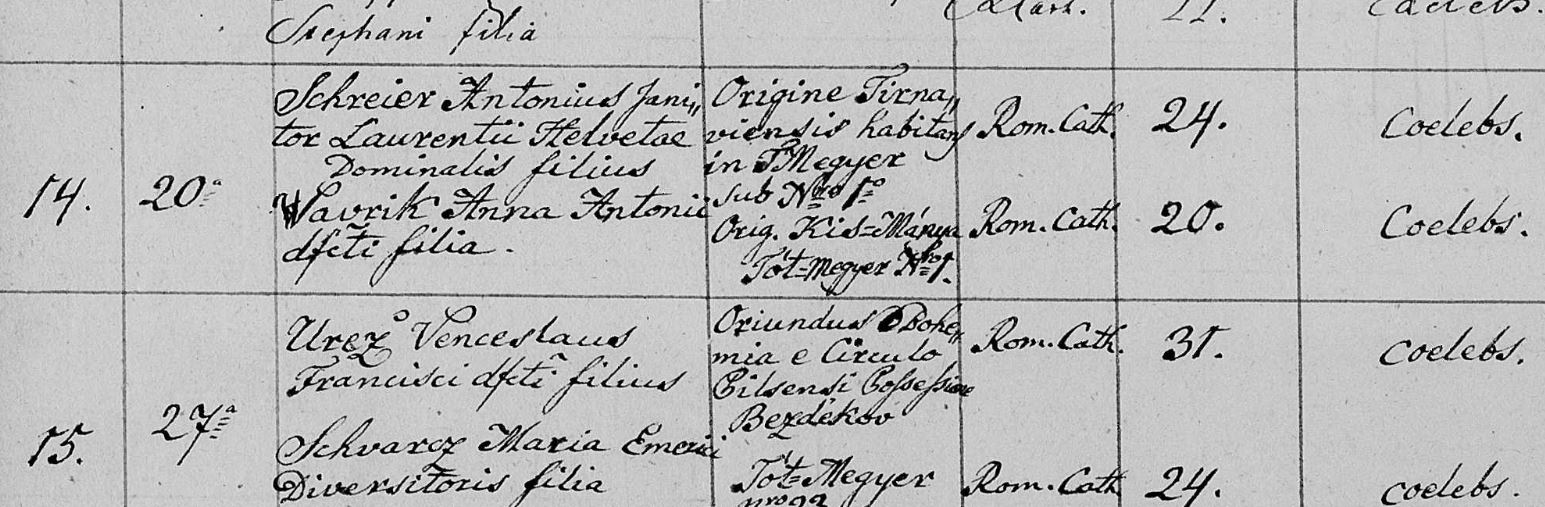 Stephani filia
21.
14.
20ª
Schreier Antonius Jani„
tor Laurentii Helvetae
Dominalis filius
Origine Tirna„
viensis habitans
in T.Megyer
sub Nro 1º
Rom. Cath.
24.
Coelebs.
Vavrik Anna Antonii
dfcti filia.
Orig. Kis=Mánya
Tót=Megyer Nro 1.
Rom. Cath.
20.
Coelebs.
15.
27ª
Urez Venceslaus
Francisci dfcti filius
Oriundus Bohe„
mia e Circulo
Pilsensi Possessione
Bezdékov
Rom. Cath.
31.
coelebs.
Schvarcz Maria Emerici
Diversitoris filia
Tót=Megyer
Rom. Cath
24.
coelebs.